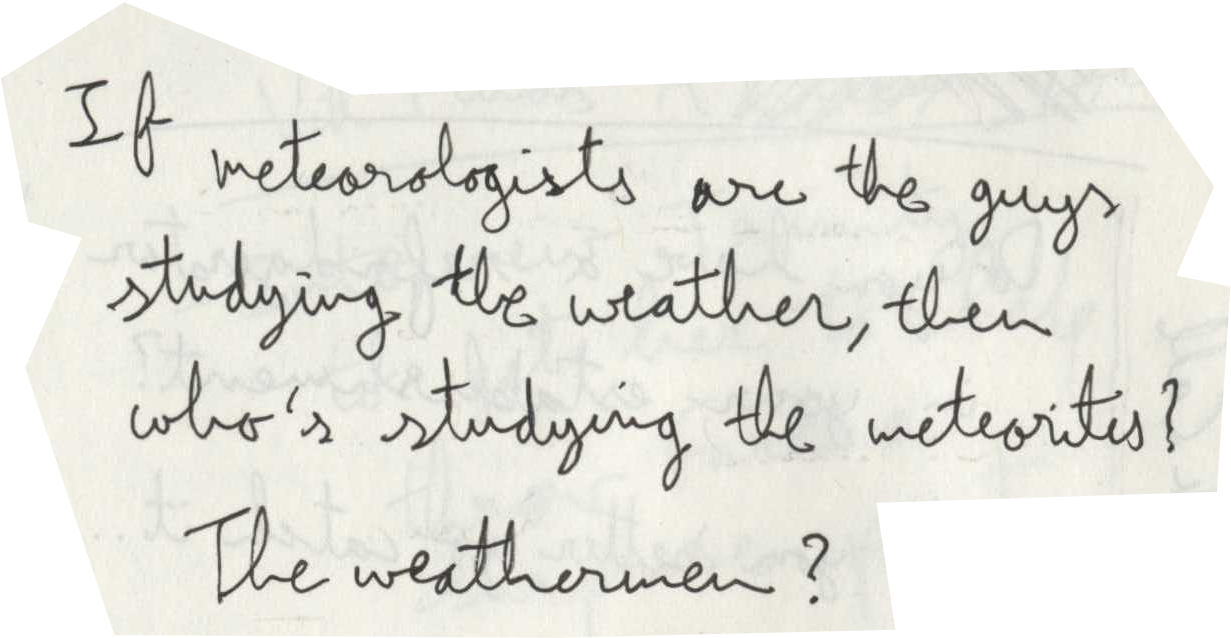 If
meteorologists are the guys
studying the weather, then
who's studying the meteorites?
The weathermen?